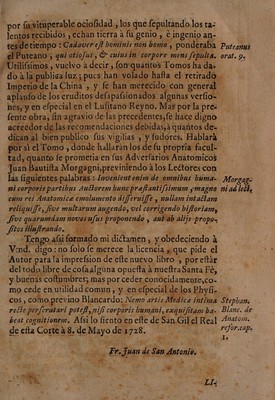 por su vituperable ociosidad, los que sepultando los ta-
lentos recibidos, echan tierra à su genio, è ingenio an-
tes de tiempo: Cadaver est hominis non homo, ponderaba
el Puteano, qui otiosus, & cuius in corpore mens sepulta.
Puteanus
orat. 9.
Utilissimos, vuelvo à decir, son quantos Tomos ha da-
do à la publica luz; pues han volado hasta el retirado
Imperio de la China, y se han merecido con general
aplauso de los eruditos desapassionados algunas versio-
nes, y en especial en el Lusitano Reyno. Mas por la pre-
sente obra, sin agravio de las precedentes, se hace digno
acreedor de las recomendaciones debidas, à quantos de-
dican al bien publico sus vigilias, y sudores. Hablarà
por sì el Tomo, donde hallaràn los de su propria facul-
tad, quanto se prometia en sus Adversarios Anatomicos
Juan Bautista Morgagni, previniendo à los Lectores con
las siguientes palabras: Invenient enim de omnibus huma-
ni corporis partibus Auctorem hunc præstantissimum, magno
cum rei Anatomicæ emolumento ita disseruisse, nullam intactam
reliquisse, sive multarum augendo, vel corrigendo historiam,
sive quarumdam novos usus proponendo, aut ab alijs propo-
sitos illustrando.
Morgag-
ni ad lect.
Tengo assi formado mi dictamen, y obedeciendo à
Vmd. digo: no solo se merece la licencia, que pide el
Autor para la impression de este nuevo libro, por estàr
del todo libre de cosa alguna opuesta à nuestra Santa Fè,
y buenas costumbres; mas por ceder conocidamente, co-
mo cede en utilidad comun, y en especial de los Physi-
cos, como previno Blancardo: Nemo artis Medicæ intima
recte perscrutari potest, nisi corporis humani, exquisitam ha-
beat cognitionem. Assi lo siento en este de San Gil el Real
de esta Corte à 8. de Mayo de 1728.
Stephan.
Blanc. de
Anatom.
refor. cap.
1.
Fr. Juan de San Antonio.
LI-